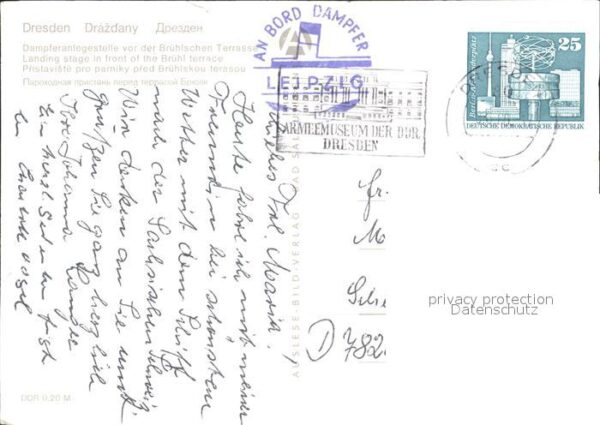 Dresden Drážďany Дрезден
Dampferanlegestelle vor der Brühlschen Terrasse
Landing stage in front of the Brühl terrace
Přístaviště pro parníky před Brühlskou terasou
Пароходная пристань перед террасой Брюля
AN BORD DAMPFER
LEIPZIG
ARMEEMUSEUM DER DDR
DRESDEN
25
Berlin-Alexanderplatz
DEUTSCHE DEMOKRATISCHE REPUBLIK
Liebes Frl. Maria!
Heute fahre ich mit meiner
Freundin bei schönstem
Wetter mit dem Schiff
nach der Sächsischen Schweiz
Wir denken an Sie und
grüßen Sie ganz herzlich
Ihre Johanna
Ein herzl.
Charlotte Vogel
AUSLESE-BILD-VERLAG BAD SALZUNGEN
Fr.
M
D 782
privacy protection
Datenschutz
DDR 0,20 M